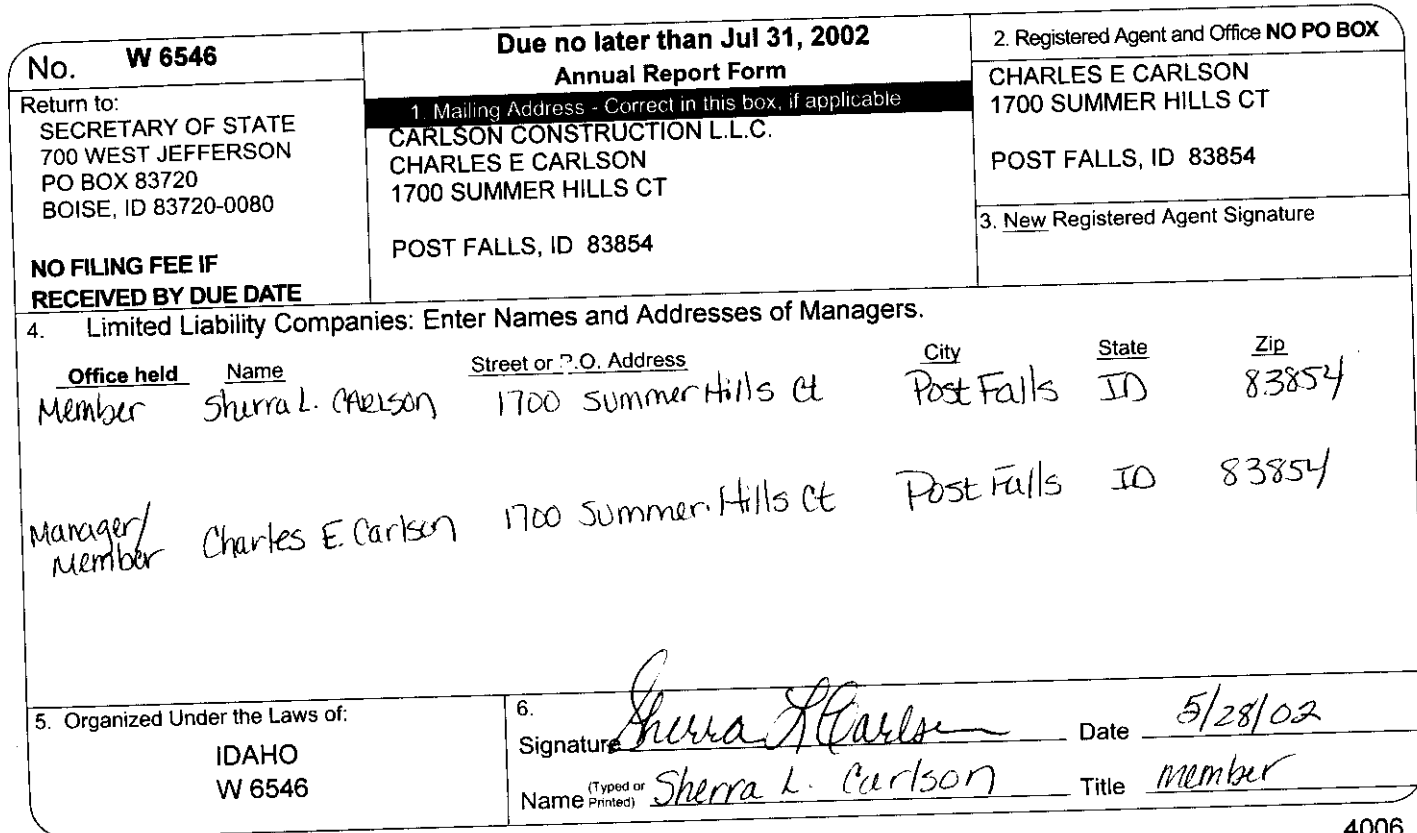 No. W 6546
Return to:
SECRETARY OF STATE
700 WEST JEFFERSON
PO BOX 83720
BOISE, ID 83720-0080
NO FILING FEE IF
RECEIVED BY DUE DATE
Due no later than Jul 31, 2002
Annual Report Form
1. Mailing Address - Correct in this box, if applicable
CARLSON CONSTRUCTION L.L.C.
CHARLES E CARLSON
1700 SUMMER HILLS CT
POST FALLS, ID 83854
2. Registered Agent and Office NO PO BOX
CHARLES E CARLSON
1700 SUMMER HILLS CT
POST FALLS, ID 83854
3. New Registered Agent Signature
4. Limited Liability Companies: Enter Names and Addresses of Managers.
Office held Name Street or P.O. Address City State Zip
Member Sherra L. CARLSON 1700 Summer Hills Ct Post Falls ID 83854
Manager/ Charles E. Carlson 1700 Summer Hills Ct Post Falls ID 83854
Member
5. Organized Under the Laws of:
IDAHO
W 6546
6.
Signature Sherra L Carlson Date 5/28/02
Name (Typed or Printed) Sherra L. Carlson Title member
4006